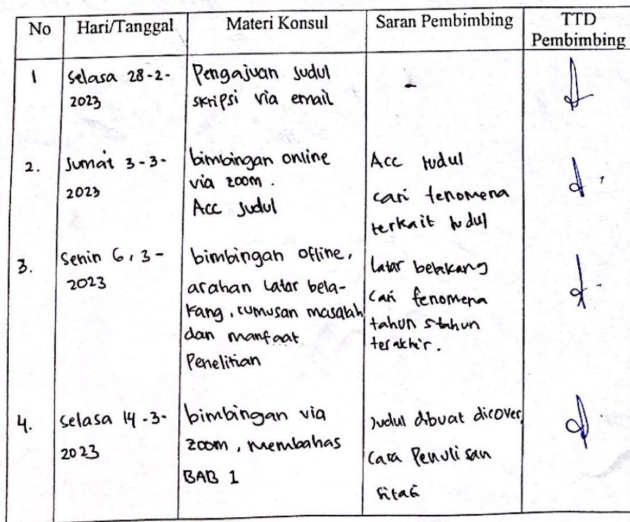 No Hari/Tanggal Materi Konsul Saran Pembimbing TTD Pembimbing
1 Selasa 28-2-2023
Pengajuan Judul
skripsi via email
-
2. Jumat 3-3-2023
bimbingan online
via zoom.
Acc Judul
Acc Judul
cari fenomena
terkait Judul
3. Senin 6, 3-2023
bimbingan ofline,
arahan Latar bela-
kang, rumusan masalah
dan manfaat
Penelitian
latar belakang
cari fenomena
tahun 5tahun
terakhir.
4. Selasa 14-3-2023
bimbingan via
zoom, membahas
BAB 1
Judul dibuat dicover,
Cara Penulisan